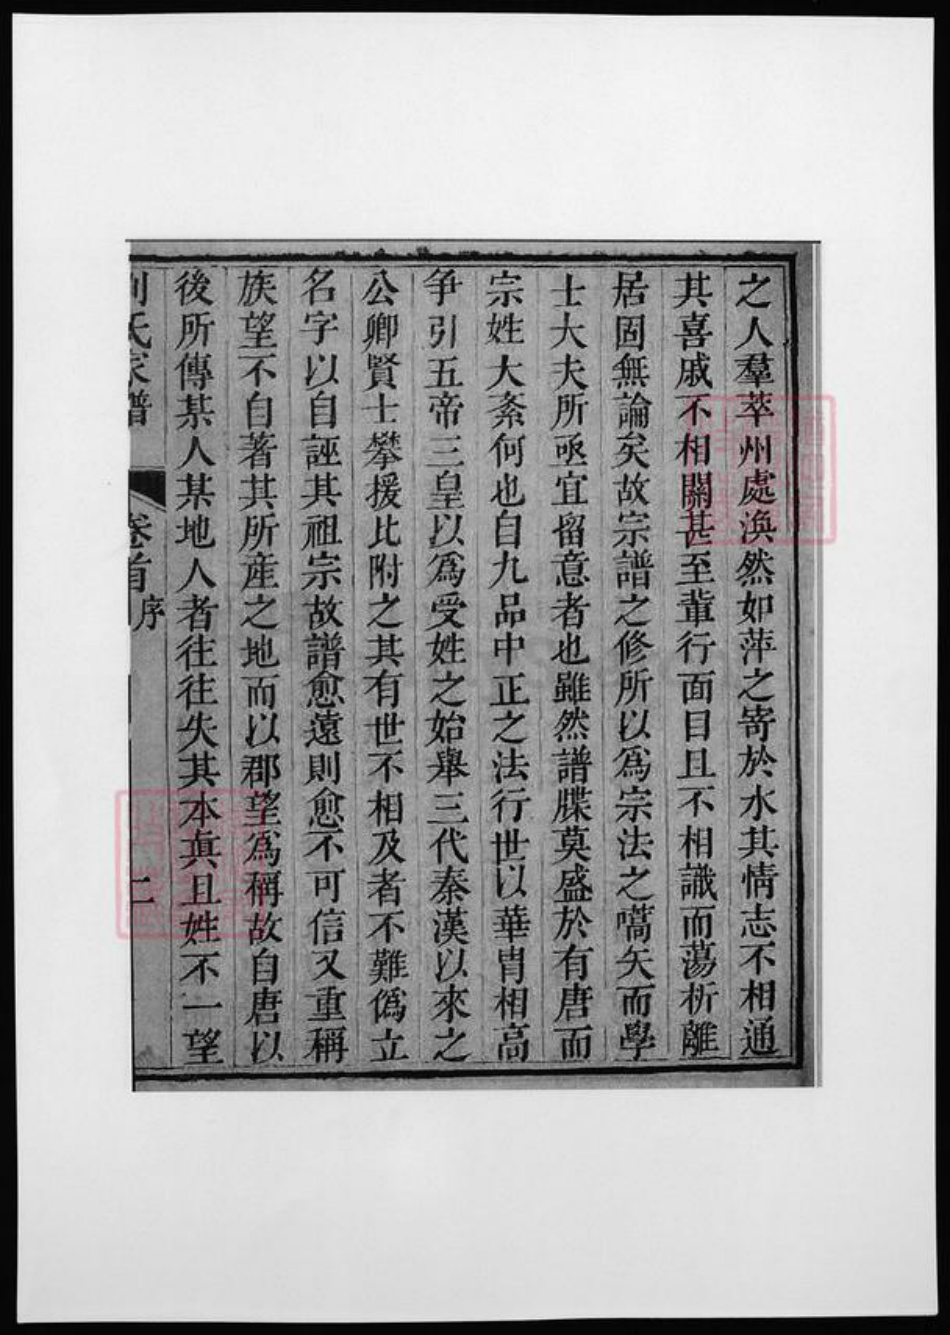 之人羣萃州處渙然如萍之寄於水其情志不相通
其喜戚不相關甚至輩行面目且不相識而蕩析離
居固無論矣故宗譜之修所以爲宗法之嚆矢而學
士大夫所亟宜留意者也雖然譜牒莫盛於有唐而
宗姓大紊何也自九品中正之法行世以華胄相高
争引五帝三皇以爲受姓之始舉三代秦漢以來之
公卿賢士攀援比附之其有世不相及者不難僞立
名字以自誣其祖宗故譜愈遠則愈不可信又重稱
族望不自著其所産之地而以郡望爲稱故自唐以
後所傳某人某地人者往往失其本真且姓不一望
氏家譜
卷首
序
二